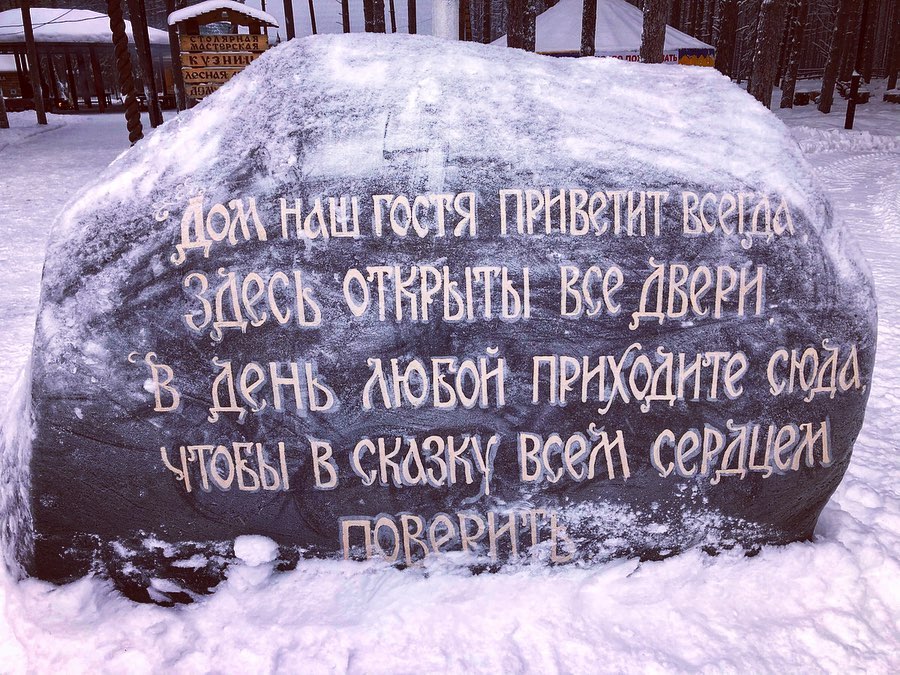 СТОЛЯРНАЯ
МАСТЕРСКАЯ
КУЗНИЦ
ЛЕСНАЯ
Дом наш гостя приветит всегда,
Здесь открыты все двери.
В день любой приходите сюда,
чтобы в сказку всем сердцем
поверить